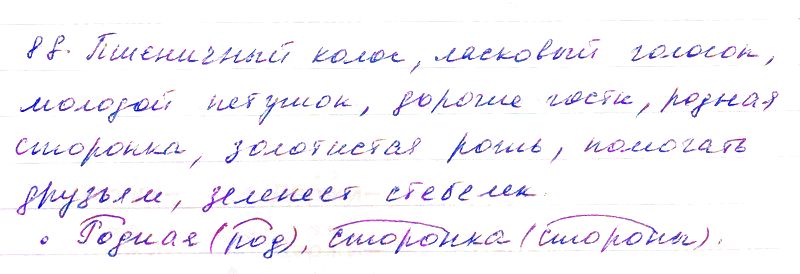 88. Пшеничный колос, ласковый голосок,
молодой петушок, дорогие гости, родная
сторонка, золотистая рожь, помогать
друзьям, зеленеет стебелек.
• Родная (род), сторонка (стороны).